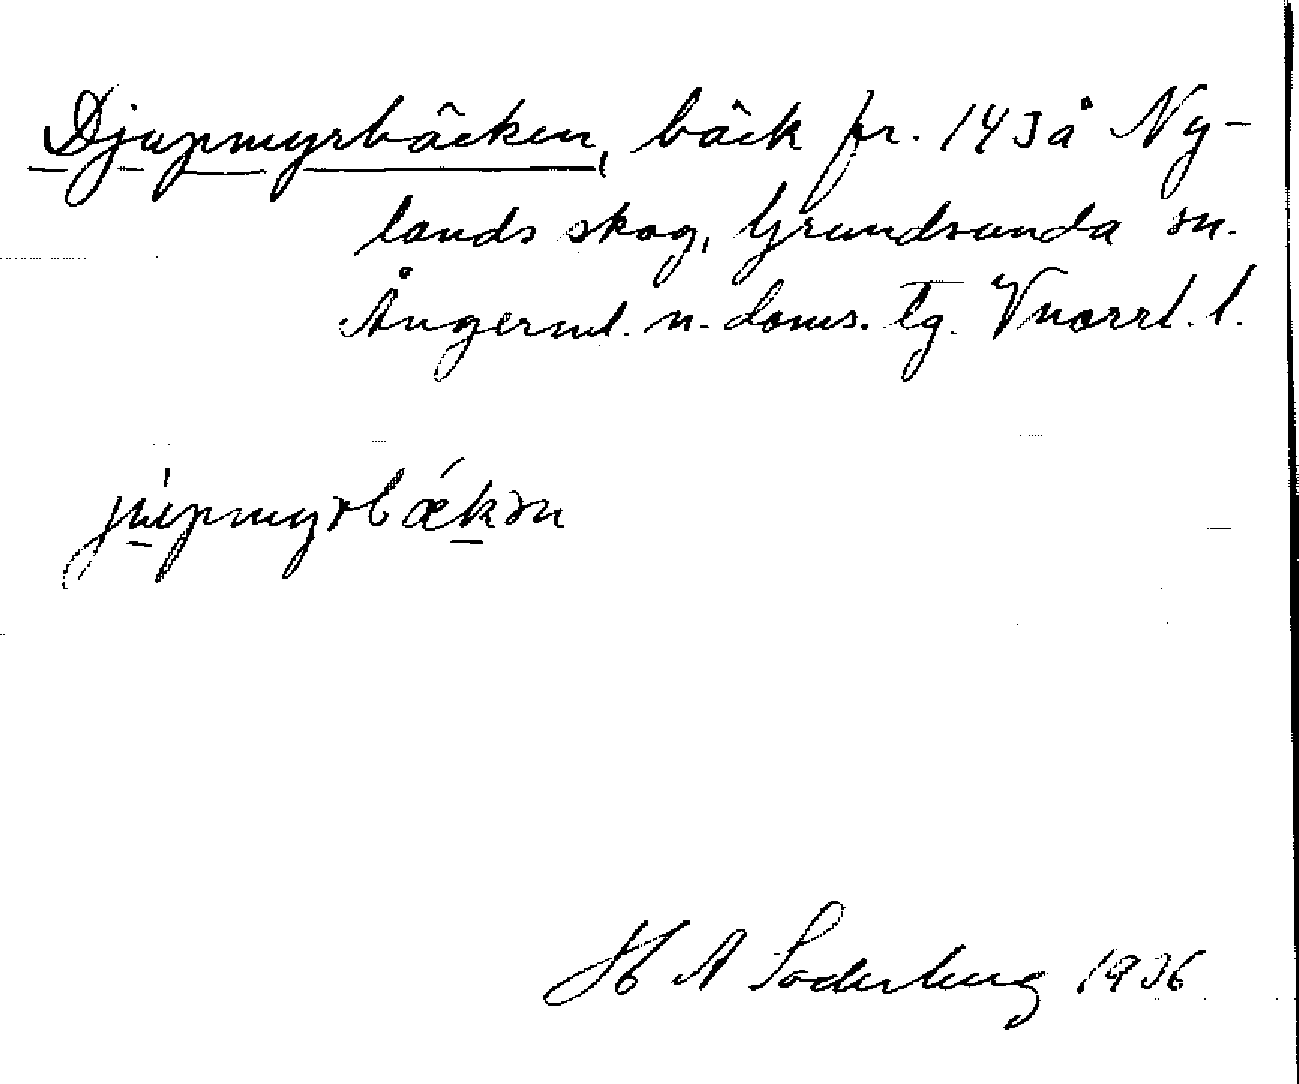 Djupmyrbäcken, bäck fr. 143 å Ny-
lands skog, Grundsunda sn.
Ångerml. n. doms. tg. Vnorrl. l.
júpmyrbǽkən
H A Söderberg 1936